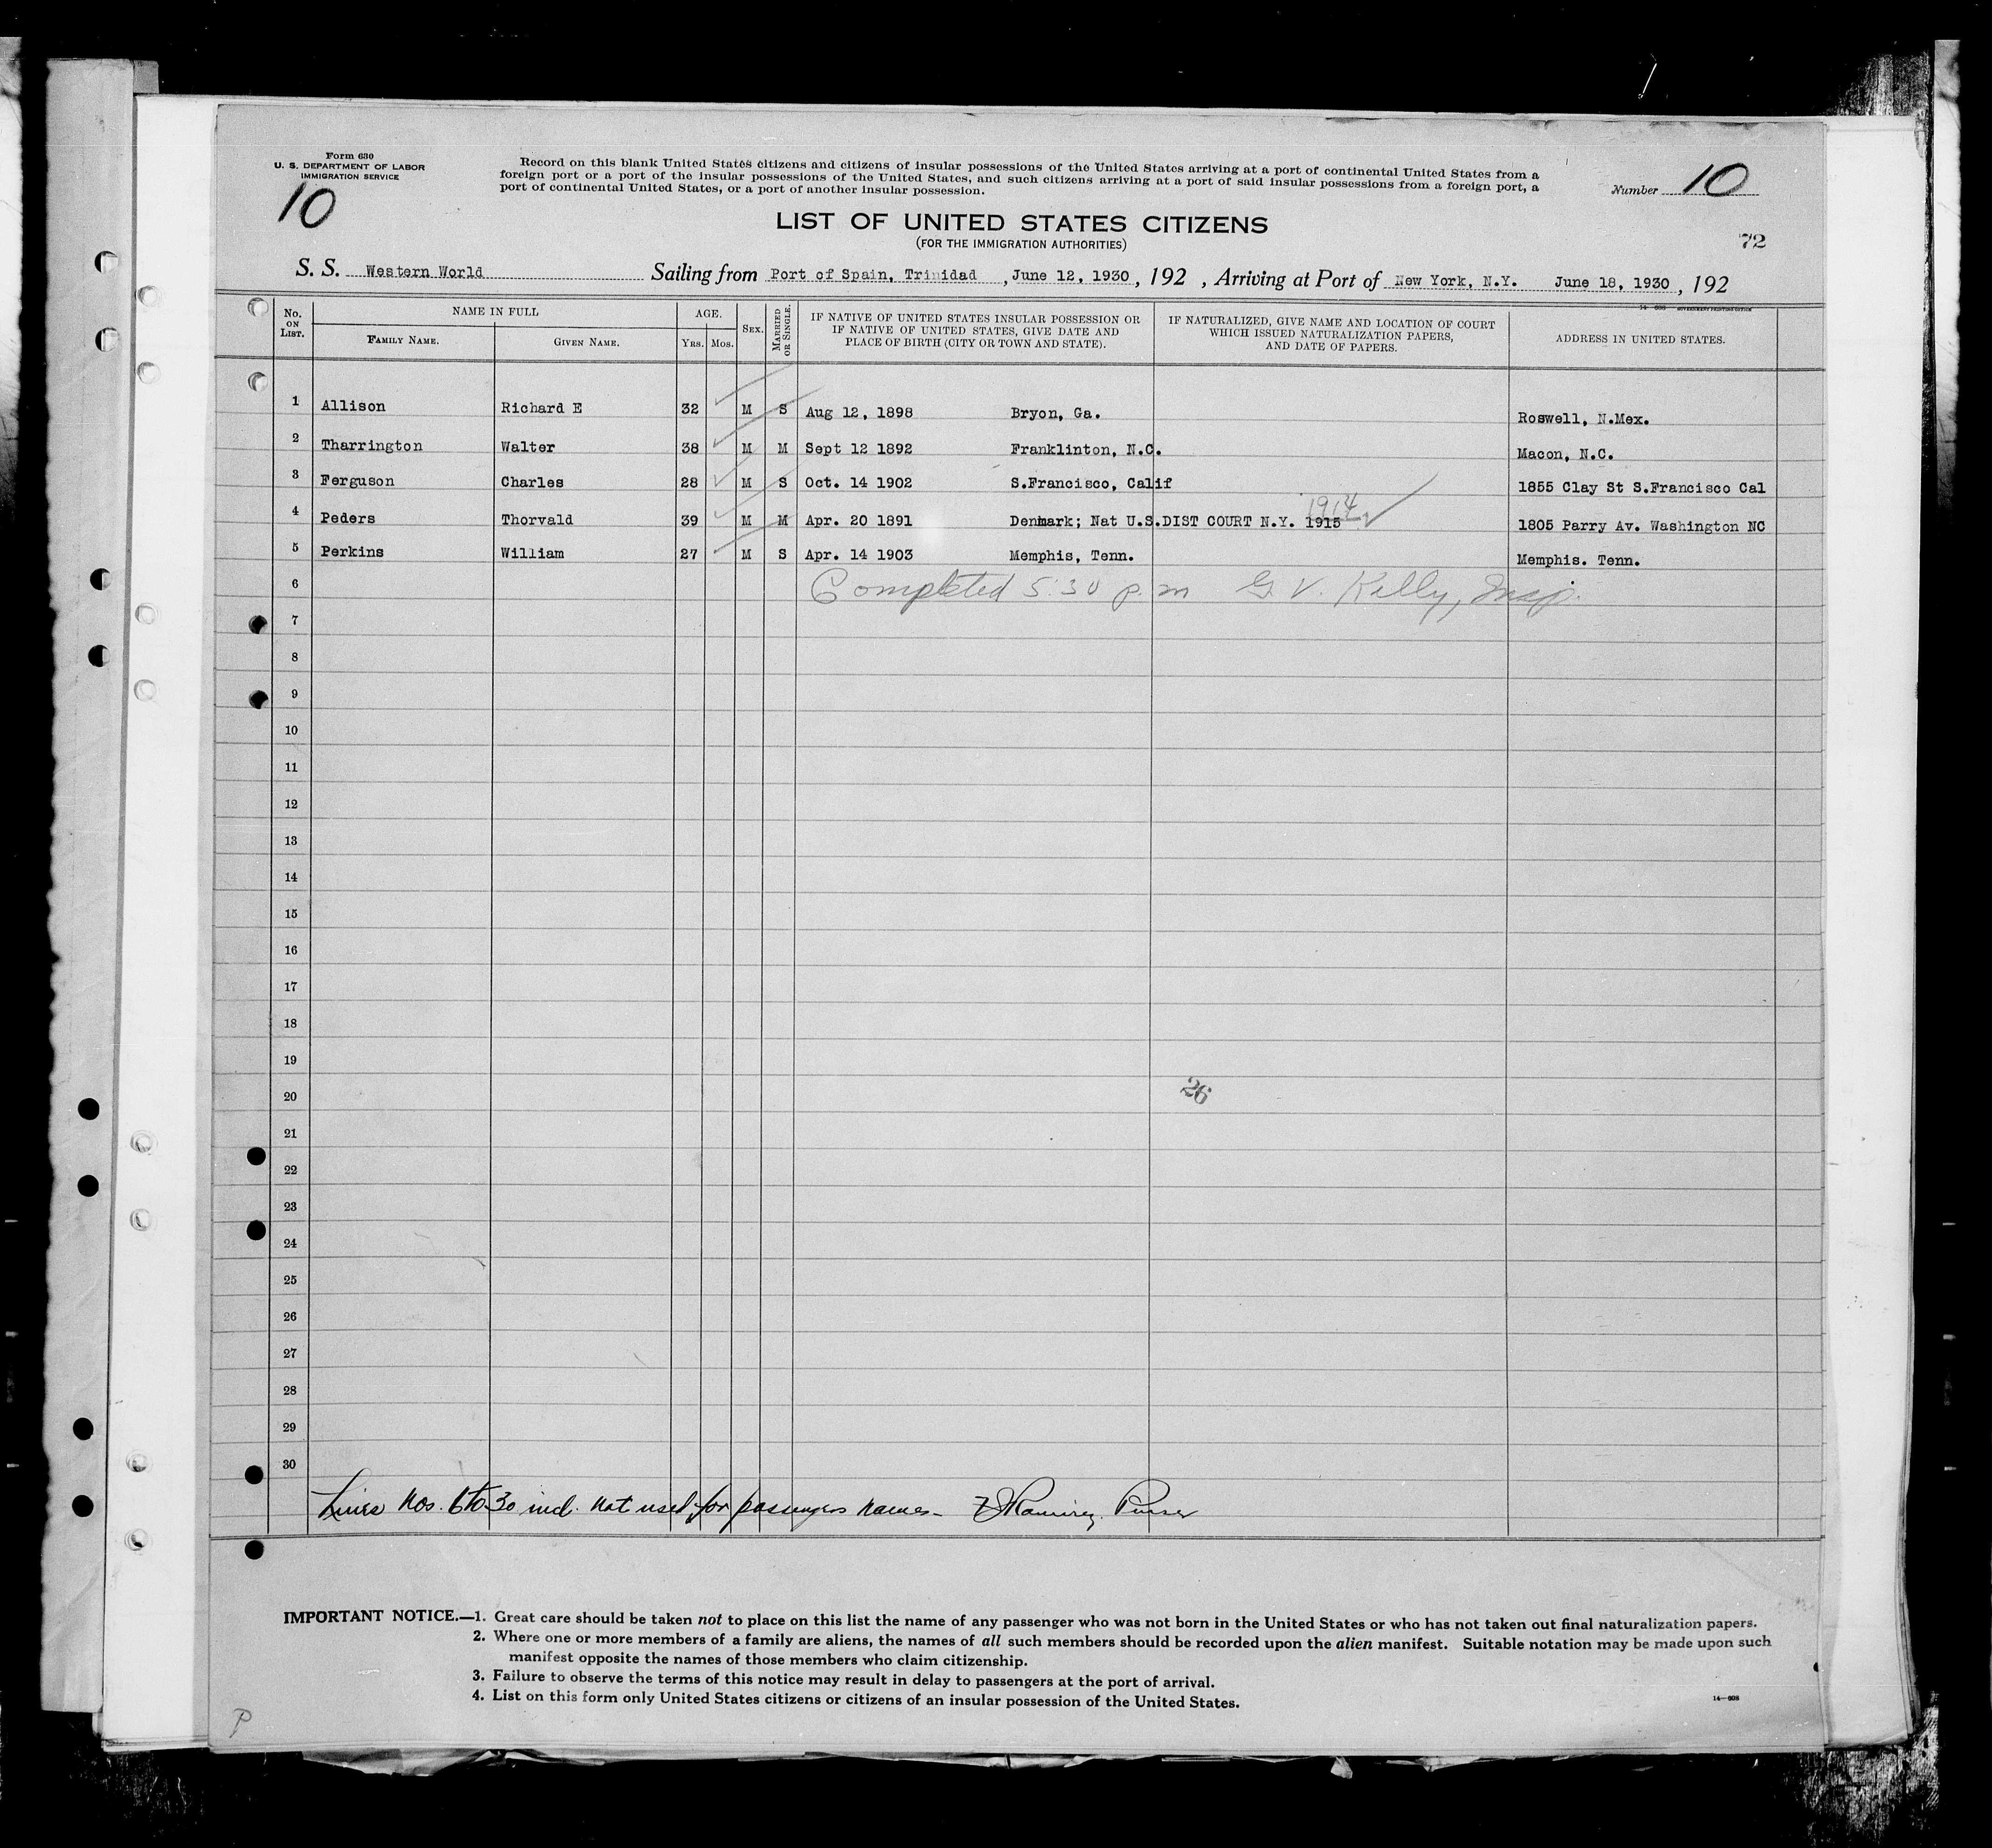 Form 630
U. S. DEPARTMENT OF LABOR
IMMIGRATION SERVICE
10
Record on this blank United States citizens and citizens of insular possessions of the United States arriving at a port of continental United States from a
foreign port or a port of the insular possessions of the United States, and such citizens arriving at a port of said insular possessions from a foreign port, a
port of continental United States, or a port of another insular possession.
Number 10
LIST OF UNITED STATES CITIZENS
(FOR THE IMMIGRATION AUTHORITIES)
72
S. S. Western World Sailing from Port of Spain, Trinidad , June 12, 1930 , 192 , Arriving at Port of New York, N.Y. June 18, 1930 , 192
No. ON LIST. NAME IN FULL FAMILY NAME. GIVEN NAME. AGE. YRS. MOS. SEX. MARRIED OR SINGLE. IF NATIVE OF UNITED STATES INSULAR POSSESSION OR IF NATIVE OF UNITED STATES, GIVE DATE AND PLACE OF BIRTH (CITY OR TOWN AND STATE). IF NATURALIZED, GIVE NAME AND LOCATION OF COURT WHICH ISSUED NATURALIZATION PAPERS, AND DATE OF PAPERS. ADDRESS IN UNITED STATES.
1 Allison Richard E 32 M S Aug 12, 1898 Bryon, Ga. Roswell, N.Mex.
2 Tharrington Walter 38 M M Sept 12 1892 Franklinton, N.C. Macon, N.C.
3 Ferguson Charles 28 M S Oct. 14 1902 S.Francisco, Calif 1855 Clay St S.Francisco Cal
1914
4 Peders Thorvald 39 M M Apr. 20 1891 Denmark; Nat U.S.DIST COURT N.Y. 1915 1805 Parry Av. Washington NC
5 Perkins William 27 M S Apr. 14 1903 Memphis, Tenn. Memphis. Tenn.
6 Completed 5:30 p.m G. V. Kelly, Insp.
7
8
9
10
11
12
13
14
15
16
17
18
19
20 26
21
22
23
24
25
26
27
28
29
30
Lines Nos. 6 to 30 incl. not used for passengers names- Ramirez, Purser
IMPORTANT NOTICE.—1. Great care should be taken not to place on this list the name of any passenger who was not born in the United States or who has not taken out final naturalization papers.
2. Where one or more members of a family are aliens, the names of all such members should be recorded upon the alien manifest. Suitable notation may be made upon such
manifest opposite the names of those members who claim citizenship.
3. Failure to observe the terms of this notice may result in delay to passengers at the port of arrival.
4. List on this form only United States citizens or citizens of an insular possession of the United States.
P